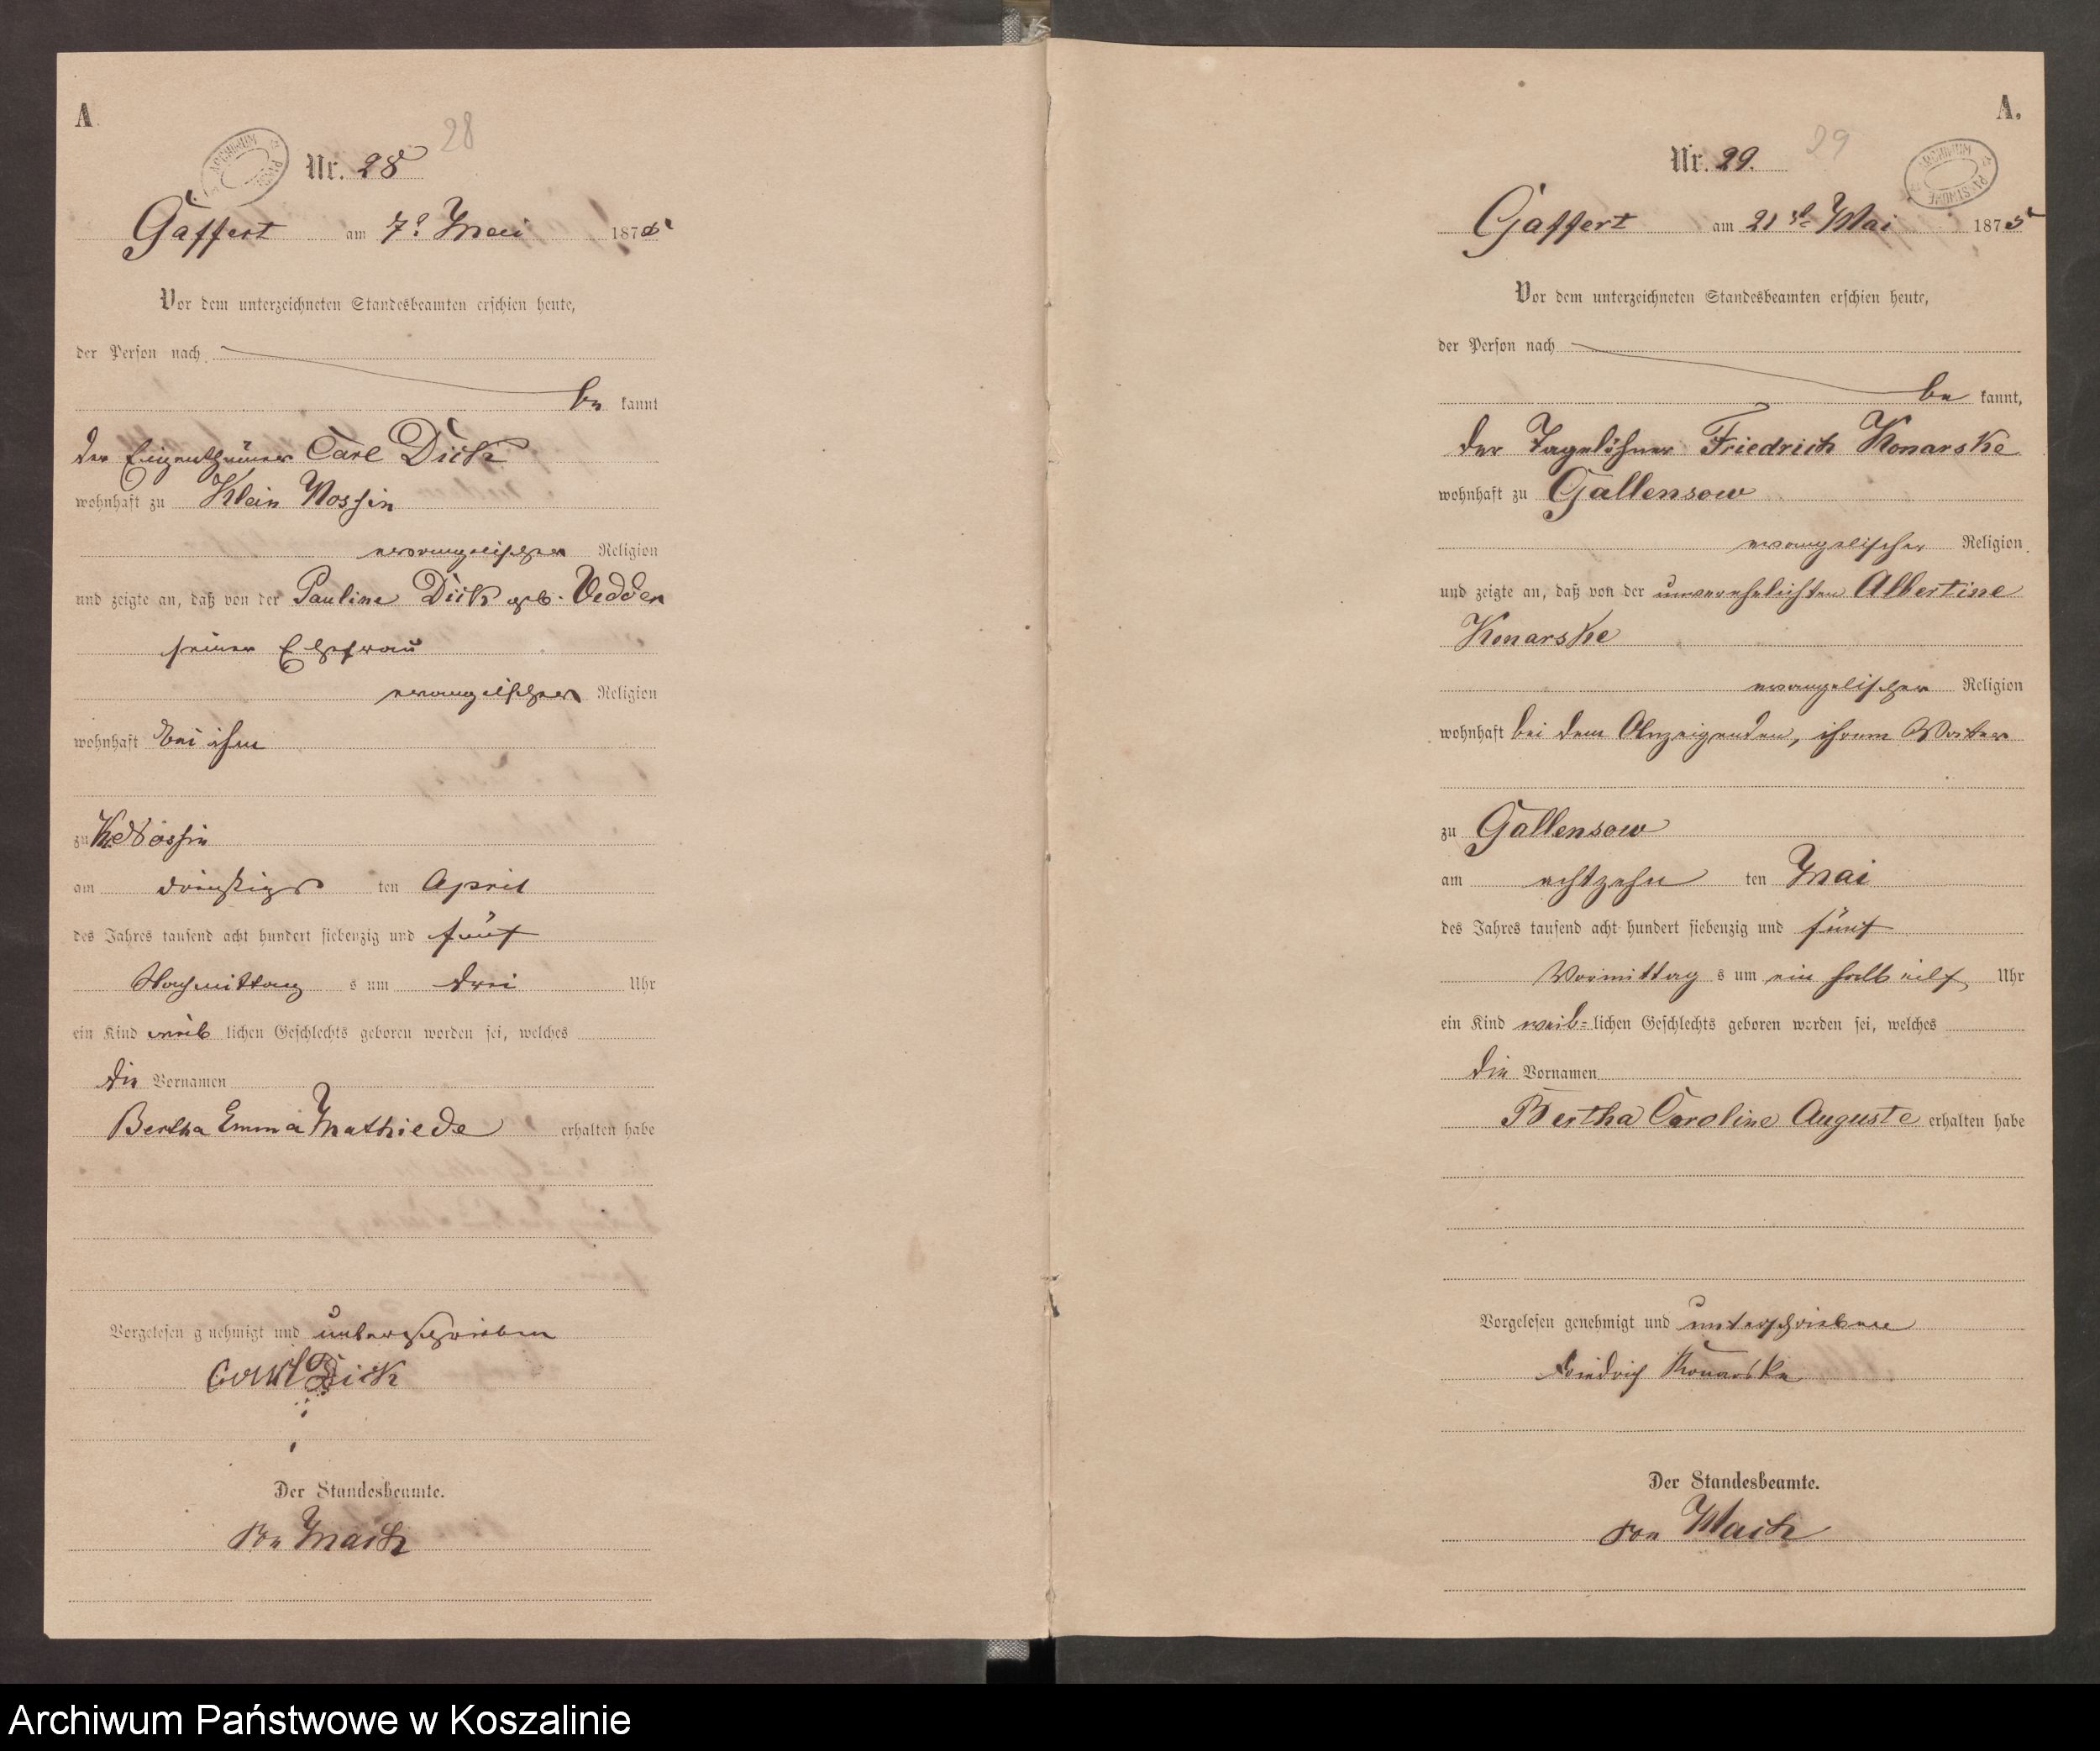 A
28
Nr. 28
Gaffert am 7t Mai 1875
Vor dem unterzeichneten Standesbeamten erschien heute,
der Person nach
be kannt
der Eigenthümer Carl Dick
wohnhaft zu Klein Nossin
evangelischer Religion
und zeigte an, daß von der Pauline Dick geb. Vedder
seiner Ehefrau
evangelischer Religion
wohnhaft bei ihm
zu Kl. Nossin
am dreißigs ten April
des Jahres tausend acht hundert siebenzig und fünf
Nachmittag s um drei Uhr
ein Kind weib lichen Geschlechts geboren worden sei, welches
die Vornamen
Bertha Emma Mathiede erhalten habe
Vorgelesen genehmigt und unterschrieben
Carl Dick
Der Standesbeamte.
von Mach
A.
29
ARCHIWUM
Nr. 29.
Gaffert am 21st Mai 1875
Vor dem unterzeichneten Standesbeamten erschien heute,
der Person nach
be kannt,
der Tagelöhner Friedrich Konarske
wohnhaft zu Gallensow
evangelischer Religion
und zeigte an, daß von der unverehelichten Albertine
Konarske
evangelischer Religion
wohnhaft bei dem Anzeigenden, ihrem Vater
zu Gallensow
am achtzehn ten Mai
des Jahres tausend acht hundert siebenzig und fünf
Vormittag s um ein halb eilf Uhr
ein Kind weib= lichen Geschlechts geboren worden sei, welches
die Vornamen
Bertha Caroline Auguste erhalten habe
Vorgelesen genehmigt und unterschrieben
Friedrich Konarske
Der Standesbeamte.
von Mach
Archiwum Państwowe w Koszalinie